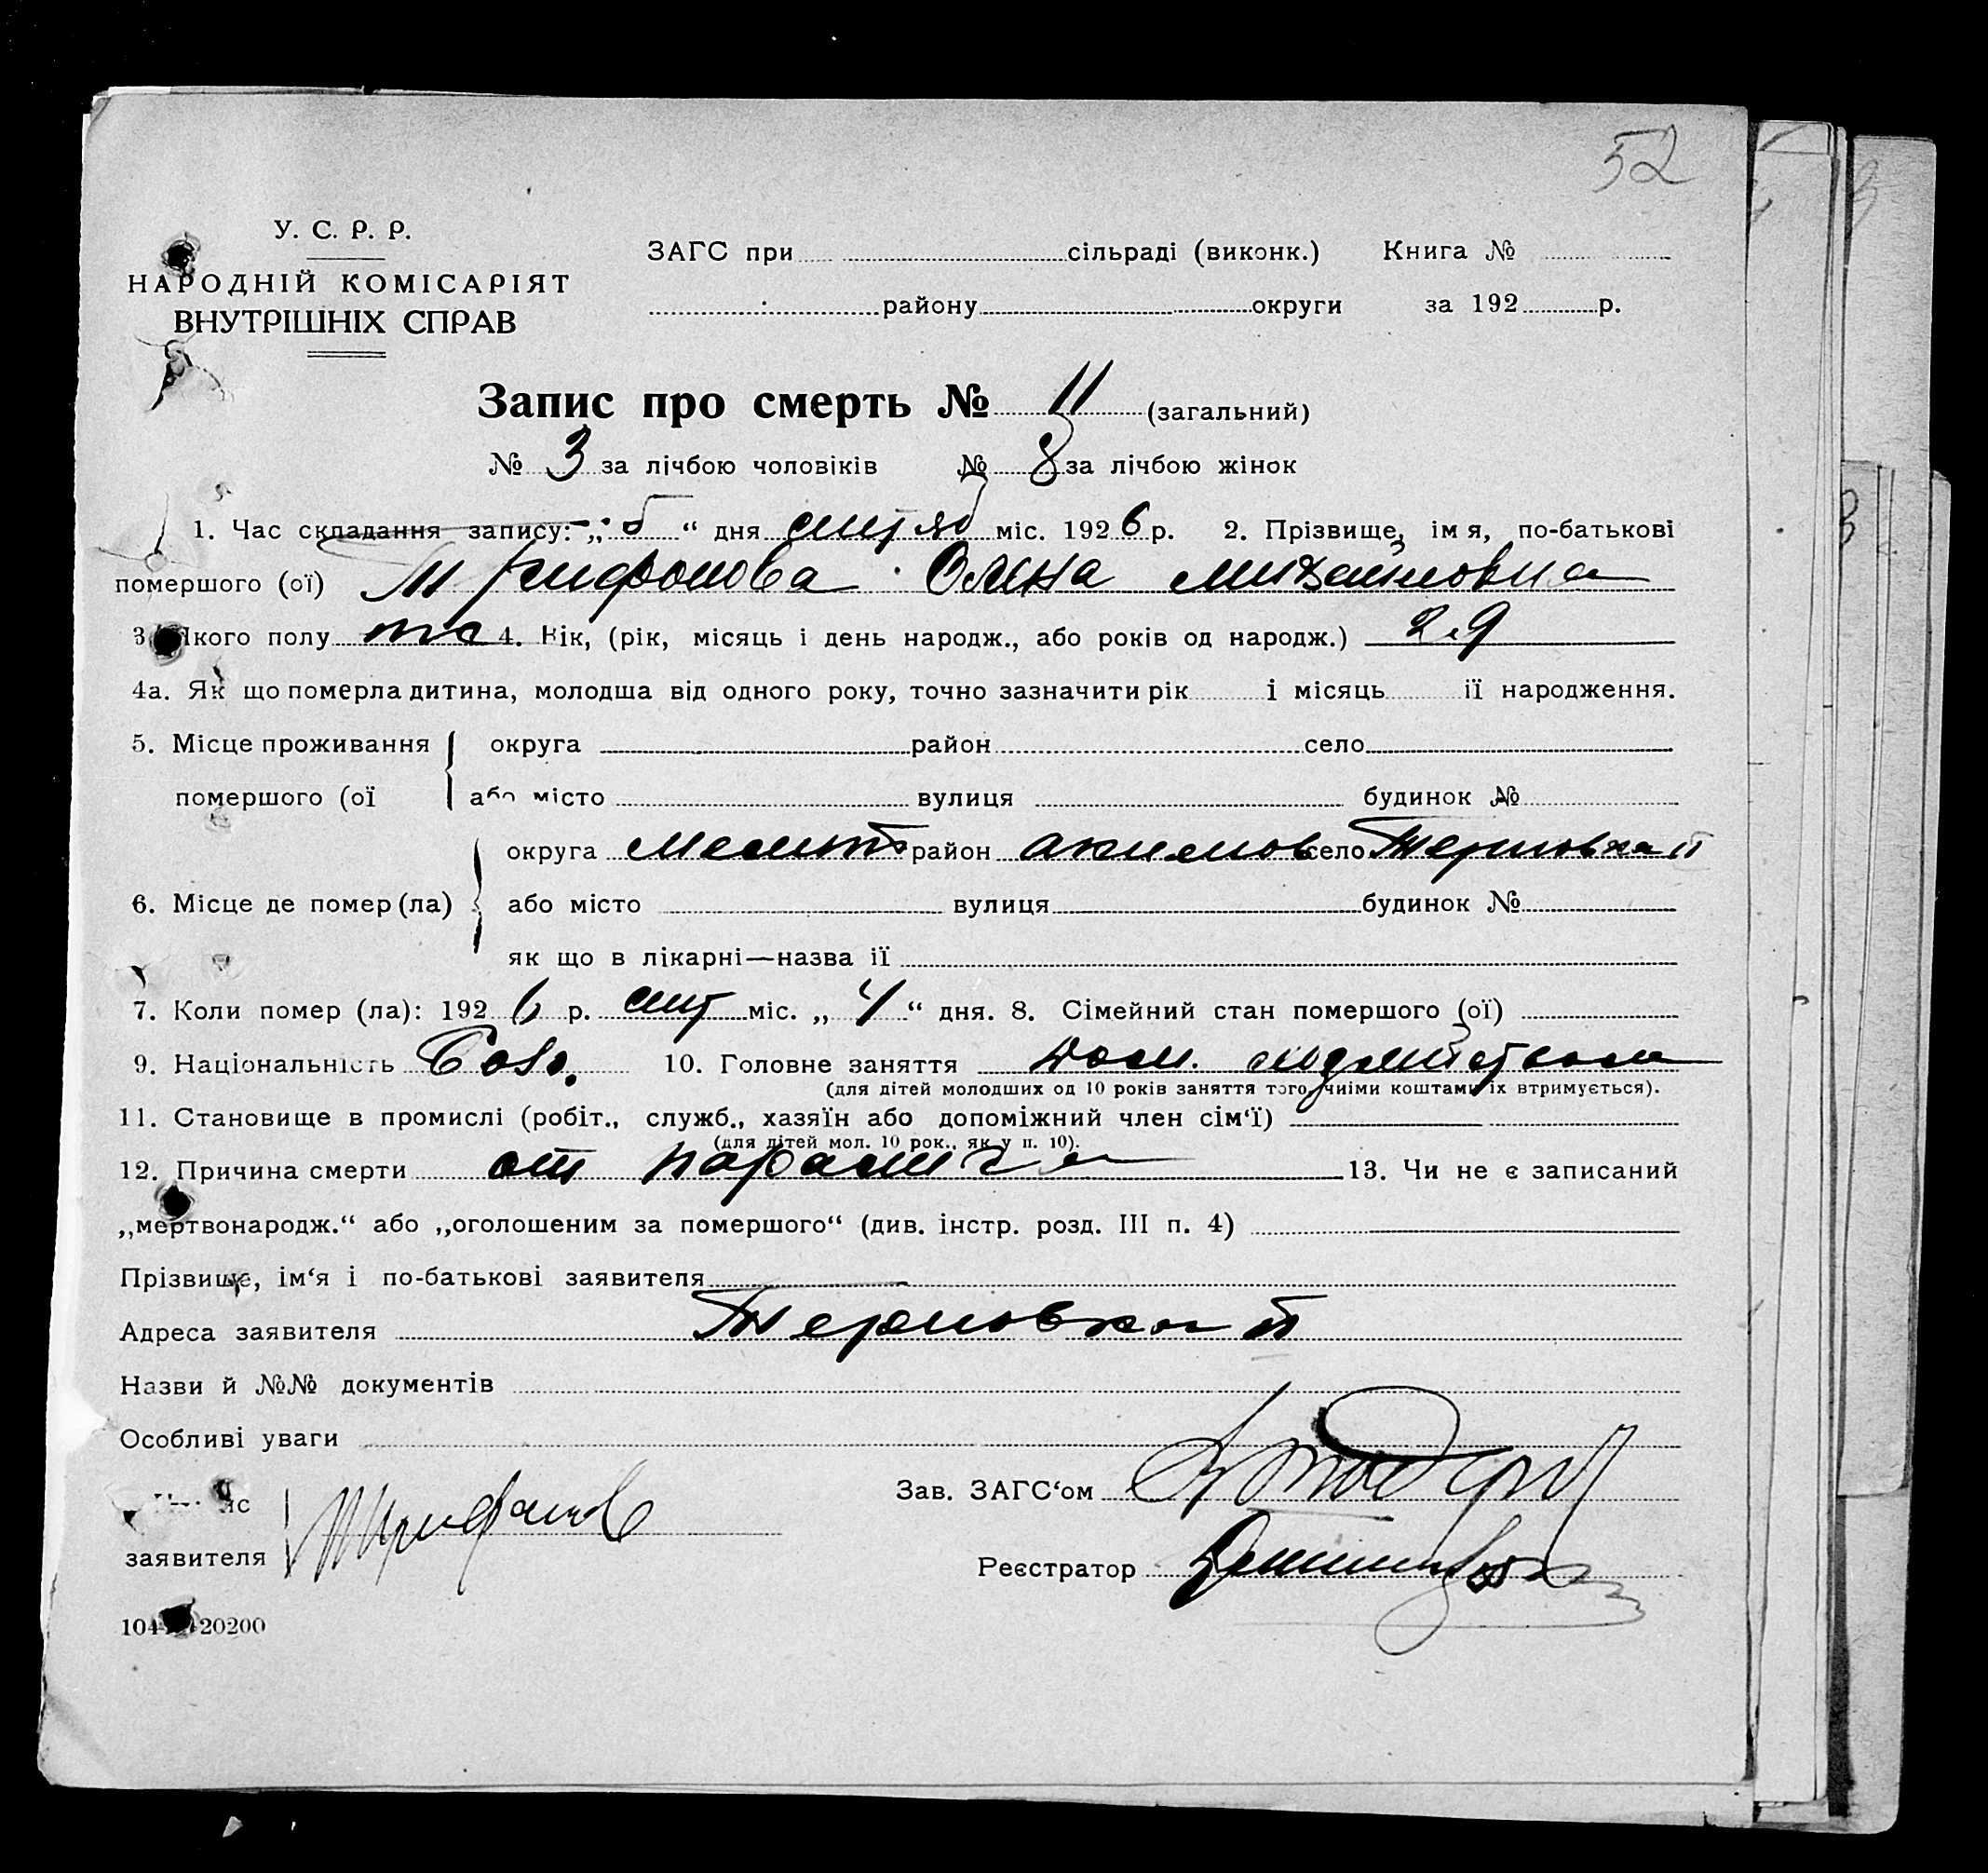 52
У. С. Р. Р.
НАРОДНІЙ КОМІСАРІЯТ
ВНУТРІШНІХ СПРАВ
ЗАГС при сільраді (виконк.) Книга №
району округи за 192 р.
Запис про смерть № 11 (загальний)
№ 3 за лічбою чоловіків № 8 за лічбою жінок
1. Час складання запису: „5“ дня міс. 1926 р. 2. Прізвище, імя, по-батькові
помершого (ої) Трифонова Олена Михайловна
3 Якого полу 4. Вік, (рік, місяць і день народж., або років од народж.) 29
4а. Як що померла дитина, молодша від одного року, точно зазначити рік і місяць її народження.
5. Місце проживання округа район село
помершого (ої або місто вулиця будинок №
округа Мелит район Акимов село Терновка II
6. Місце де помер (ла) або місто вулиця будинок №
як що в лікарні—назва її
7. Коли помер (ла): 1926 р. сент міс. „4“ дня. 8. Сімейний стан помершого (ої)
9. Національність 10. Головне заняття дом.
(для дітей молодших од 10 років заняття того, чиїми коштами їх втримується).
11. Становище в промислі (робіт., служб., хазяїн або допоміжний член сім‘ї)
(для дітей мол. 10 рок., як у п. 10).
12. Причина смерти от паралича 13. Чи не є записаний
„мертвонародж.“ або „оголошеним за помершого“ (див. інстр. розд. III п. 4)
Прізвище, ім‘я і по-батькові заявителя
Адреса заявителя Терновка II
Назви й №№ документів
Особливі уваги
Зав. ЗАГС‘ом
заявителя Трифонов
Реєстратор
20200